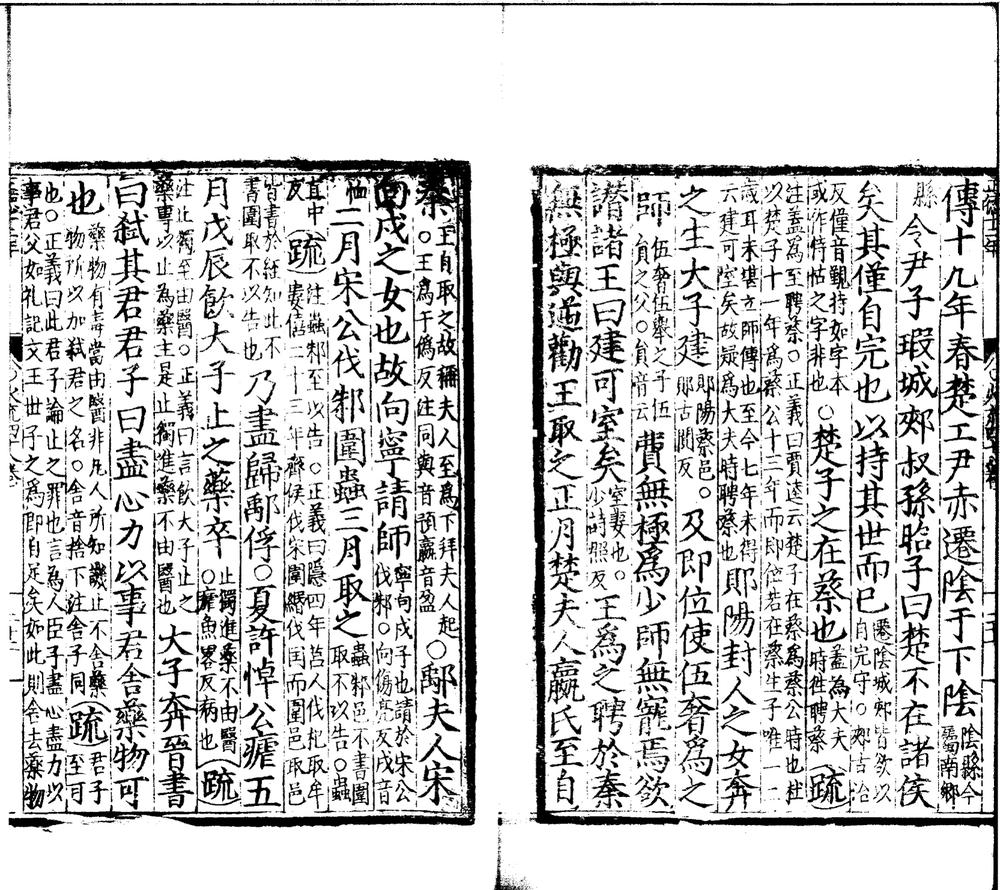 傳十九年春楚工尹赤遷陰于下陰陰縣今屬南鄉
縣令尹子瑕城郟叔孫昭子曰楚不在諸侯
矣其僅自完也以持其世而已遷陰城郟皆欲以自完守○郟古洽
反僅音覲持如字本或作恃怙之字非也○楚子之在蔡也蓋為大夫時往聘蔡疏
注蓋為至聘蔡○正義曰賈逵云楚子在蔡為蔡公時也杜
以楚子十一年為蔡公十三年而即位若在蔡生子唯一二
歲耳未堪立師傅也至今七年未得
云建可室矣故疑為大夫時聘蔡也郹陽封人之女奔
之生大子建郹陽蔡邑。郹古闃反及即位使伍奢為之
師伍奢伍舉之子伍員之父○員音云費無極為少師無寵焉欲
譖諸王曰建可室矣室妻也。少詩照反王為之聘於秦
無極與逆勸王取之正月楚夫人嬴氏至自
秦王自取之故稱夫人至為下拜夫人起○王為于偽反注同與音預嬴音盈○鄅夫人宋
向戌之女也故向寧請師寧向戌子也請於宋公伐邾○向傷亮反戌音
恤二月宋公伐邾圍蟲三月取之蟲邾邑不書圍取不以告○蟲
直中反疏注蟲邾至以告○正義曰隱四年莒人伐杞取牟
婁僖二十三年齊侯伐宋圍緡伐國而圍邑取邑
皆書於經知此不書圍取不以告也乃盡歸鄅俘○夏許悼公瘧五
月戊辰飲大子止之藥卒止獨進藥不由醫○瘧魚略反病也疏
注止獨至由醫○正義曰言飲大子止之
藥專以止為藥主是止獨進藥不由醫也大子奔晉書
曰弒其君君子曰盡心力以事君舍藥物可
也藥物有毒當由醫非凡人所知譏止不舍藥物所以加弒君之名○舍音捨下注舍子同疏君子至可
也○正義曰此君子論止之罪也言為人臣子盡心盡力以
事君父如礼記文王世子之為即自足矣如此則舍去藥物